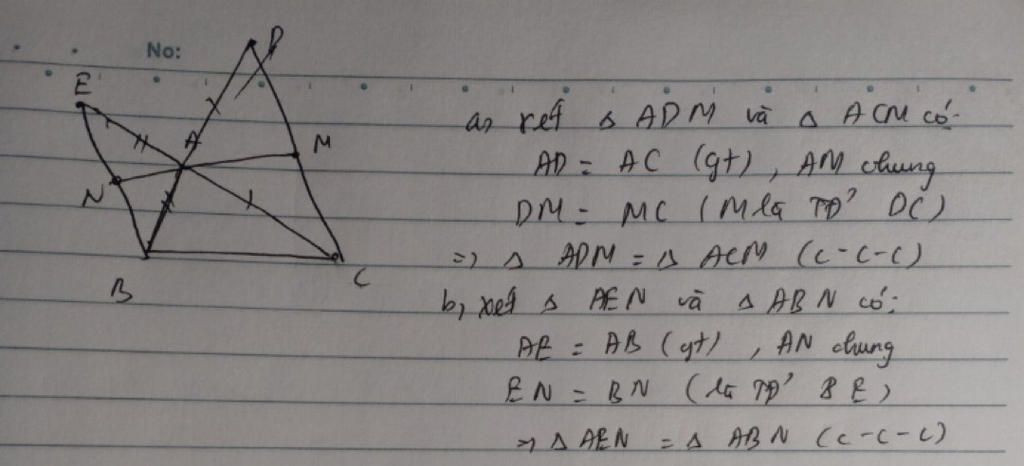 No:
D
E
A
M
N
B
C
a, xét Δ ADM và Δ ACM có:
AD = AC (gt), AM chung
DM = MC (M là TĐ' DC)
=> Δ ADM = Δ ACM (c-c-c)
b, xét Δ AEN và Δ ABN có:
AE = AB (gt), AN chung
EN = BN (là TĐ' BE)
=> Δ AEN = Δ ABN (c-c-c)